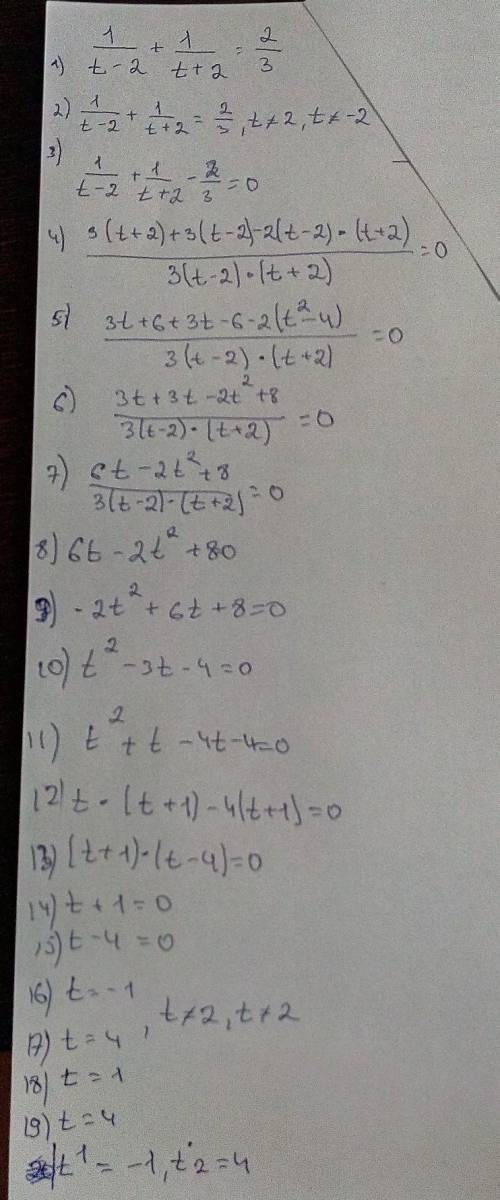 1) 1/(t-2) + 1/(t+2) = 2/3
2) 1/(t-2) + 1/(t+2) = 2/3, t≠2, t≠-2
3) 1/(t-2) + 1/(t+2) - 2/3 = 0
4) (3(t+2)+3(t-2)-2(t-2)·(t+2))/(3(t-2)·(t+2)) = 0
5) (3t+6+3t-6-2(t²-4))/(3(t-2)·(t+2)) = 0
6) (3t+3t-2t²+8)/(3(t-2)·(t+2)) = 0
7) (6t-2t²+8)/(3(t-2)·(t+2)) = 0
8) 6t-2t²+80
9) -2t²+6t+8=0
10) t²-3t-4=0
11) t²+t-4t-4=0
12) t·(t+1)-4(t+1)=0
13) (t+1)·(t-4)=0
14) t+1=0
15) t-4=0
16) t=-1
17) t=4, t≠2, t≠2
18) t=1
19) t=4
t1=-1, t2=4